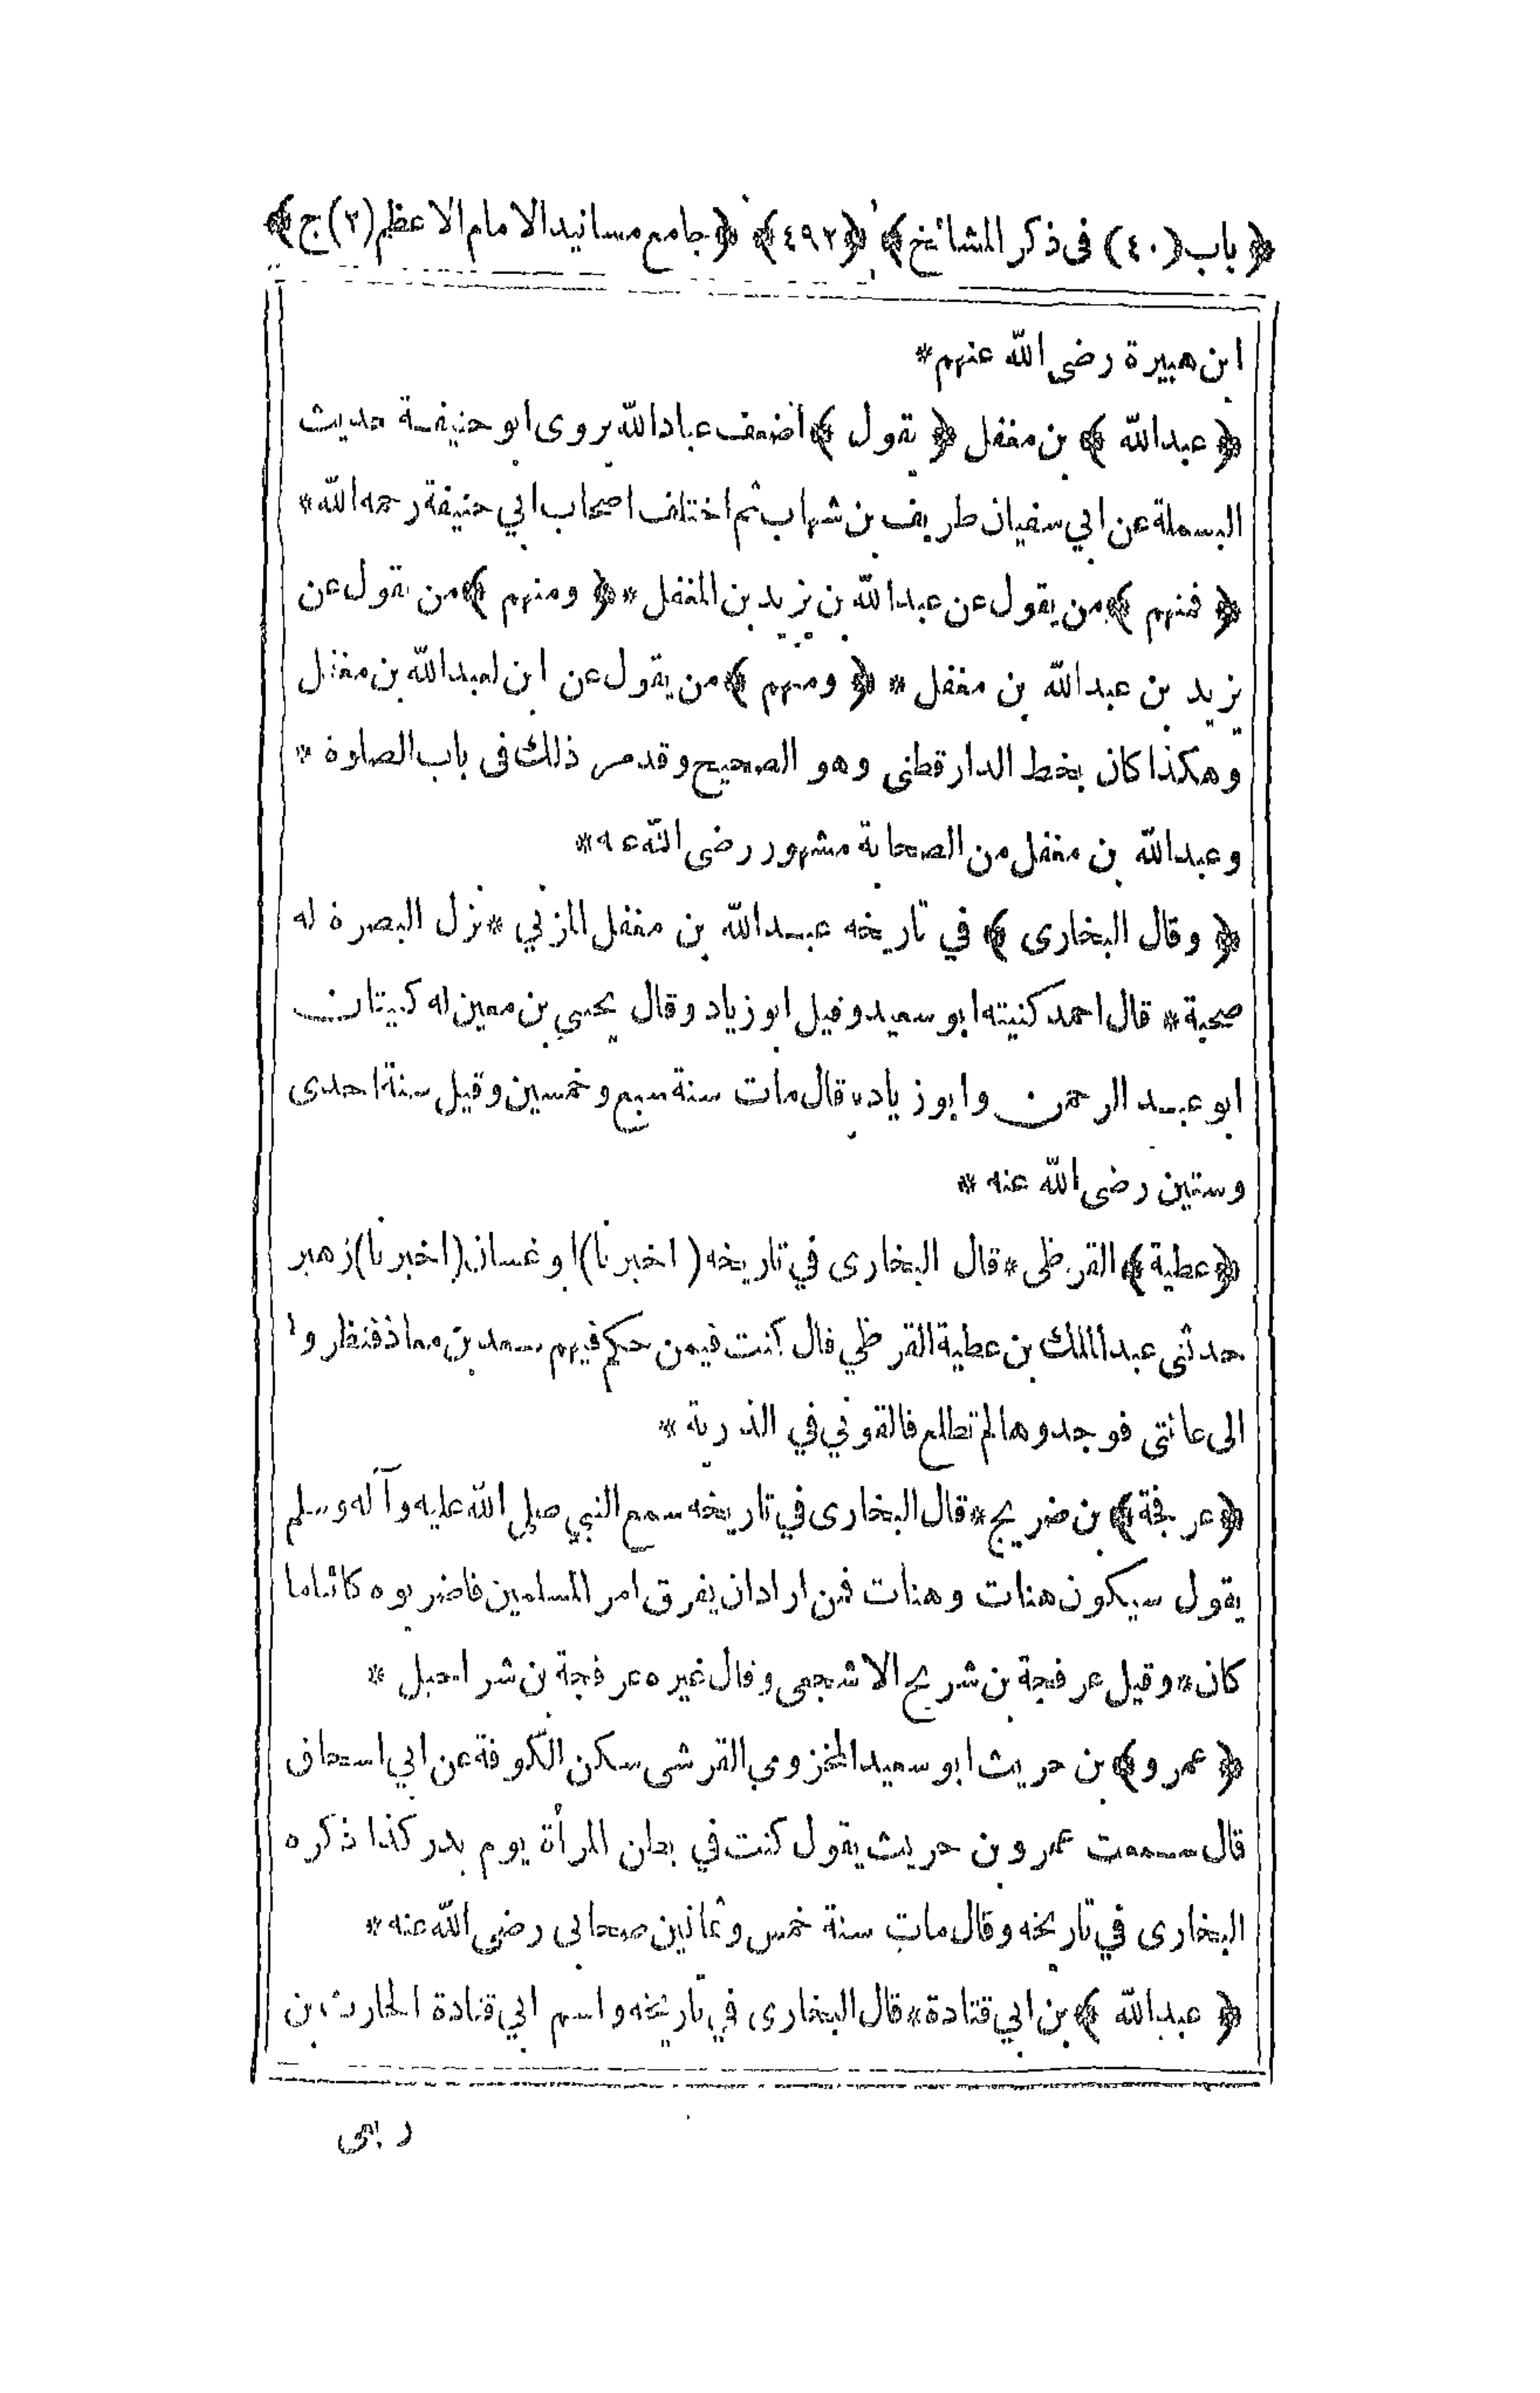 ﴿ باب (٤٠) فى ذكر المشائخ ﴾ ﴿ ٤٩٢ ﴾ ﴿ جامع مسانيد الامام الاعظم (٢) ج ﴾
ابن هبيرة رضى الله عنهم *
﴿ عبدالله ﴾ بن مغفل ﴿ يقول ﴾ اضعف عبادالله روى ابو حنيفة حديث
البسملة عن ابي سفيان طريف بن شهاب ثم اختلف اصحاب ابي حنيفة رحمه الله *
﴿ فمنهم ﴾ من يقول عن عبدالله بن يزيد بن المغفل * ﴿ ومنهم ﴾ من يقول عن
يزيد بن عبدالله بن مغفل * ﴿ ومنهم ﴾ من يقول عن ابن لعبدالله بن مغفل
وهكذا كان بخط الدارقطنى وهو الصحيح وقد مر ذلك فى باب الصلوة *
وعبدالله بن مغفل من الصحابة مشهور رضى الله عنه *
﴿ وقال البخارى ﴾ في تاريخه عبدالله بن مغفل المزني * نزل البصرة له
صحبة * قال احمد كنيته ابو سعيد وقيل ابو زياد وقال يحيى بن معين له كنيتان
ابو عبد الرحمن وابو زياد * قال مات سنة سبع وخمسين وقيل سنة احدى
وستين رضى الله عنه *
﴿ عطية ﴾ القرظى * قال البخارى في تاريخه ( اخبرنا ) ابو غسان ( اخبرنا ) زهير
حدثنى عبدالملك بن عطية القرظي قال كنت فيمن حكم فيهم سعد بن معاذ فنظروا
الى عانتى فوجدوها لم تطلع فالقوني في الذرية *
﴿ عرفجة ﴾ بن ضريح * قال البخارى في تاريخه سمع النبي صلى الله عليه وآله وسلم
يقول سيكون هنات وهنات فمن اراد ان يفرق امر المسلمين فاضربوه كائنا ما
كان * وقيل عرفجة بن شريح الاشجعى وقال غيره عرفجة بن شراحيل *
﴿ عمرو ﴾ بن حريث ابو سعيد المخزومي القرشى سكن الكوفة عن ابي اسحاق
قال سمعت عمرو بن حريث يقول كنت في بطن المرأة يوم بدر كذا ذكره
البخارى في تاريخه وقال مات سنة خمس وثمانين صحابى رضى الله عنه *
﴿ عبدالله ﴾ بن ابي قتادة * قال البخارى في تاريخه واسم ابي قتادة الحارث بن
ربعى